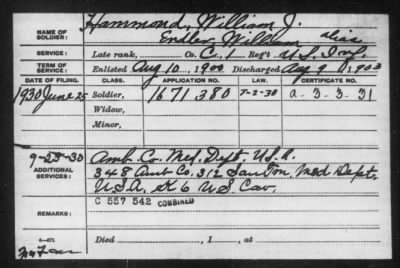 Hammond, William J.
NAME OF SOLDIER: alias
Endler, William
SERVICE: Late rank, Co. C, 1 Reg't U.S. Inf.
TERM OF SERVICE: Enlisted Aug 10, 1900 Discharged Aug 9, 1903
DATE OF FILING. CLASS. APPLICATION NO. LAW. CERTIFICATE NO.
1930 June 25 Soldier, 1671380 J-2-30 a-3-3-31
Widow,
Minor,
9-23-30 Amb. Co. Med. Dept. U.S.A.
ADDITIONAL SERVICES: 348 Amb Co. 312 San Trn. Med Dept.
U.S.A. K 6 U.S. Cav.
C 557 542 COMBINED
REMARKS:
Died , 1 , at